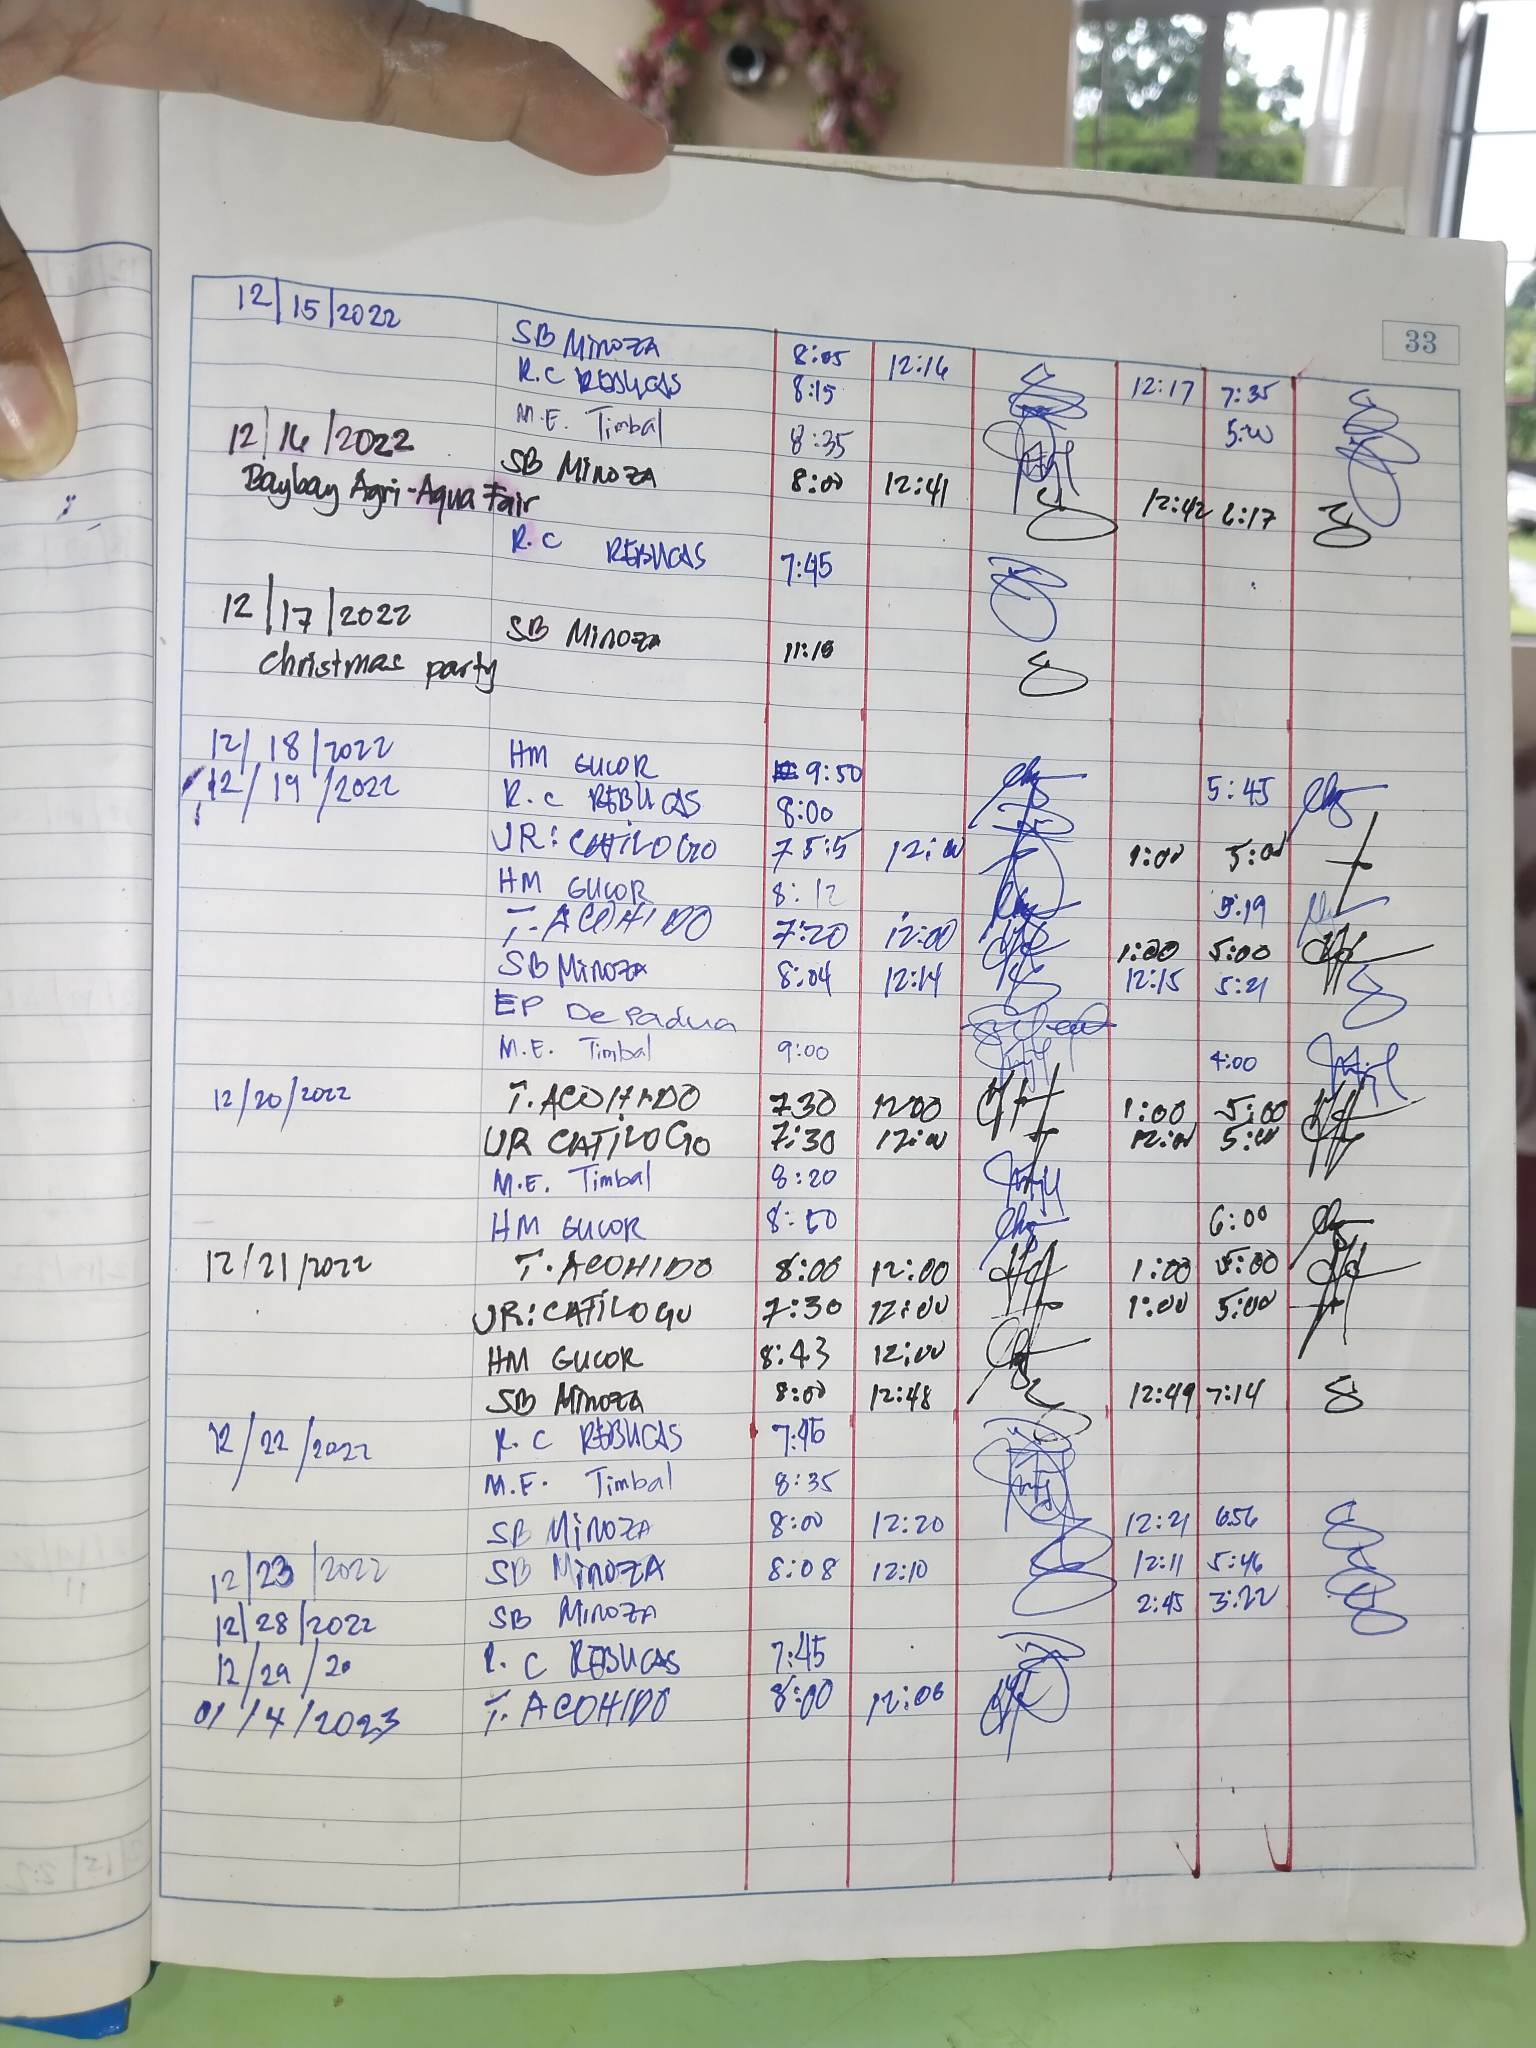 33
12/15/2022
SB Minoza 8:05 12:16 12:17 7:35
R.C REBUCAS 8:15 5:20
M.E. Timbal 8:35
12/16/2022 SB Minoza 8:00 12:41 12:42 6:17
Baybay Agri-Aqua Fair
R.C REBUCAS 7:45
12/17/2022 SB Minoza 11:18
Christmas party
12/18/2022 HM GUCOR 9:50 5:45
12/19/2022 R.C REBUCAS 8:00
UR: CATILOGO 7 55:5 12:00 1:00 5:00
HM GUCOR 8:12 5:19
T. ACOHIDO 7:20 12:00 1:00 5:00
SB Minoza 8:04 12:14 12:15 5:21
EP De Padua
M.E. Timbal 9:00 4:00
12/20/2022 T. ACOHIDO 730 1200 1:00 5:00
UR CATILOGO 7:30 12:00 12:00 5:00
M.E. Timbal 8:20
HM GUCOR 8:50 6:00
12/21/2022 T. ACOHIDO 8:00 12:00 1:00 5:00
UR: CATILOGO 7:30 12:00 1:00 5:00
HM GUCOR 8:43 12:00
SB Minoza 8:00 12:48 12:49 7:14
12/22/2022 R.C REBUCAS 7:45
M.E. Timbal 8:35
SB MINOZA 8:00 12:20 12:21 656
12/23/2022 SB MINOZA 8:08 12:10 12:11 5:46
12/28/2022 SB MINOZA 2:45 3:22
12/29/20 R.C REBUCAS 7:45
01/4/2023 T. ACOHIDO 8:00 12:00